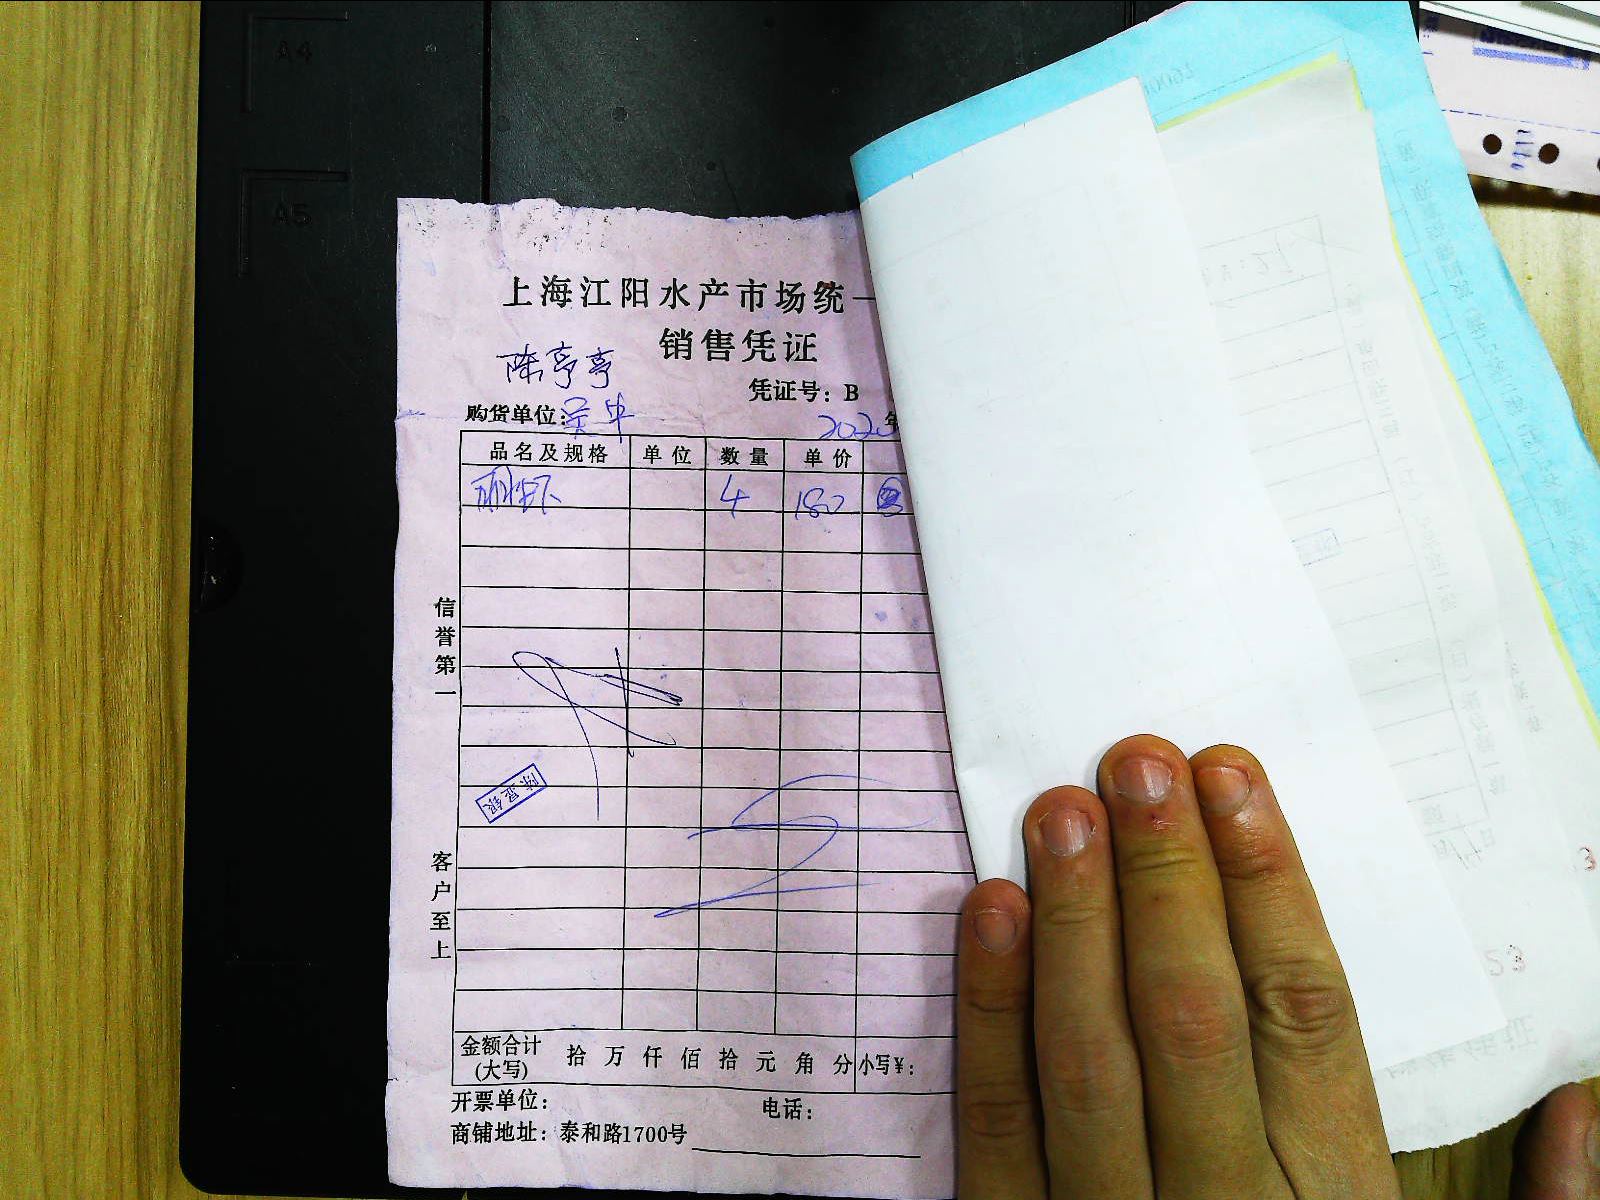 A4
A5
上海江阳水产市场统一
销售凭证
陈亭亭
凭证号：B
购货单位：吴中
2020年
品名及规格 单位 数量 单价
4 180
信誉第一
客户至上
金额合计
(大写)
拾 万 仟 佰 拾 元 角 分 小写¥：
开票单位：
电话：
商铺地址：泰和路1700号
23
3